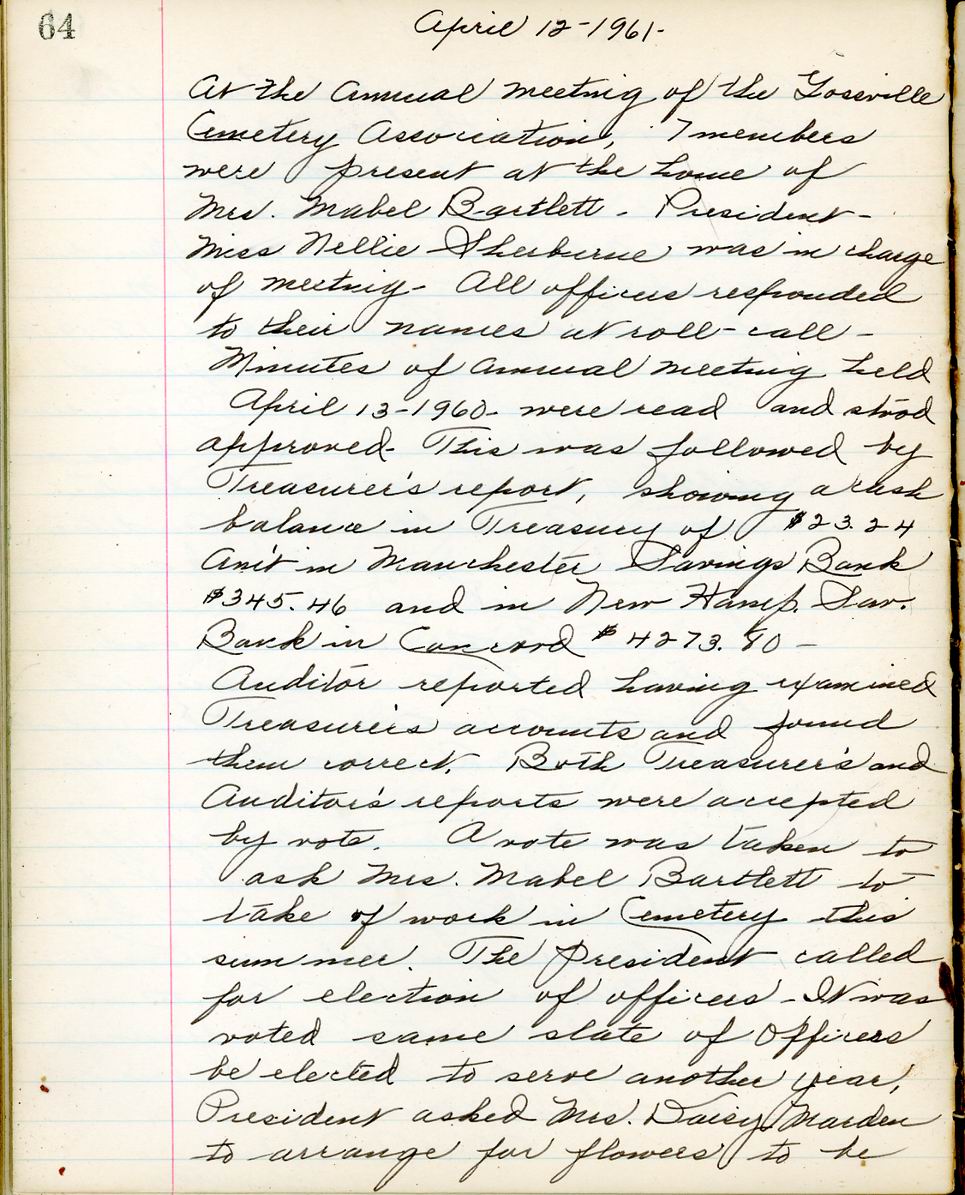 64
April 12-1961-
At the Annual meeting of the Gossville
Cemetery Association, 7 members
were present at the home of
Mrs. Mabel Bartlett - President -
Miss Nellie Sherburne was in charge
of meeting - All officers responded
to their names at roll-call -
Minutes of Annual meeting held
April 13-1960- were read and stood
approved- This was followed by
Treasurer's report, showing a cash
balance in Treasury of $23.24
Am't in Manchester Savings Bank
$345.46 and in New Hamp. Sav.
Bank in Concord $4273.80 -
Auditor reported having examined
Treasurer's accounts and found
them correct. Both Treasurer's and
Auditor's reports were accepted
by vote. A vote was taken to
ask Mrs. Mabel Bartlett to
take of work in Cemetery this
summer. The President called
for election of officers - It was
voted same slate of Officers
be elected to serve another year,
President asked Mrs. Daisy Marden
to arrange for flowers to be